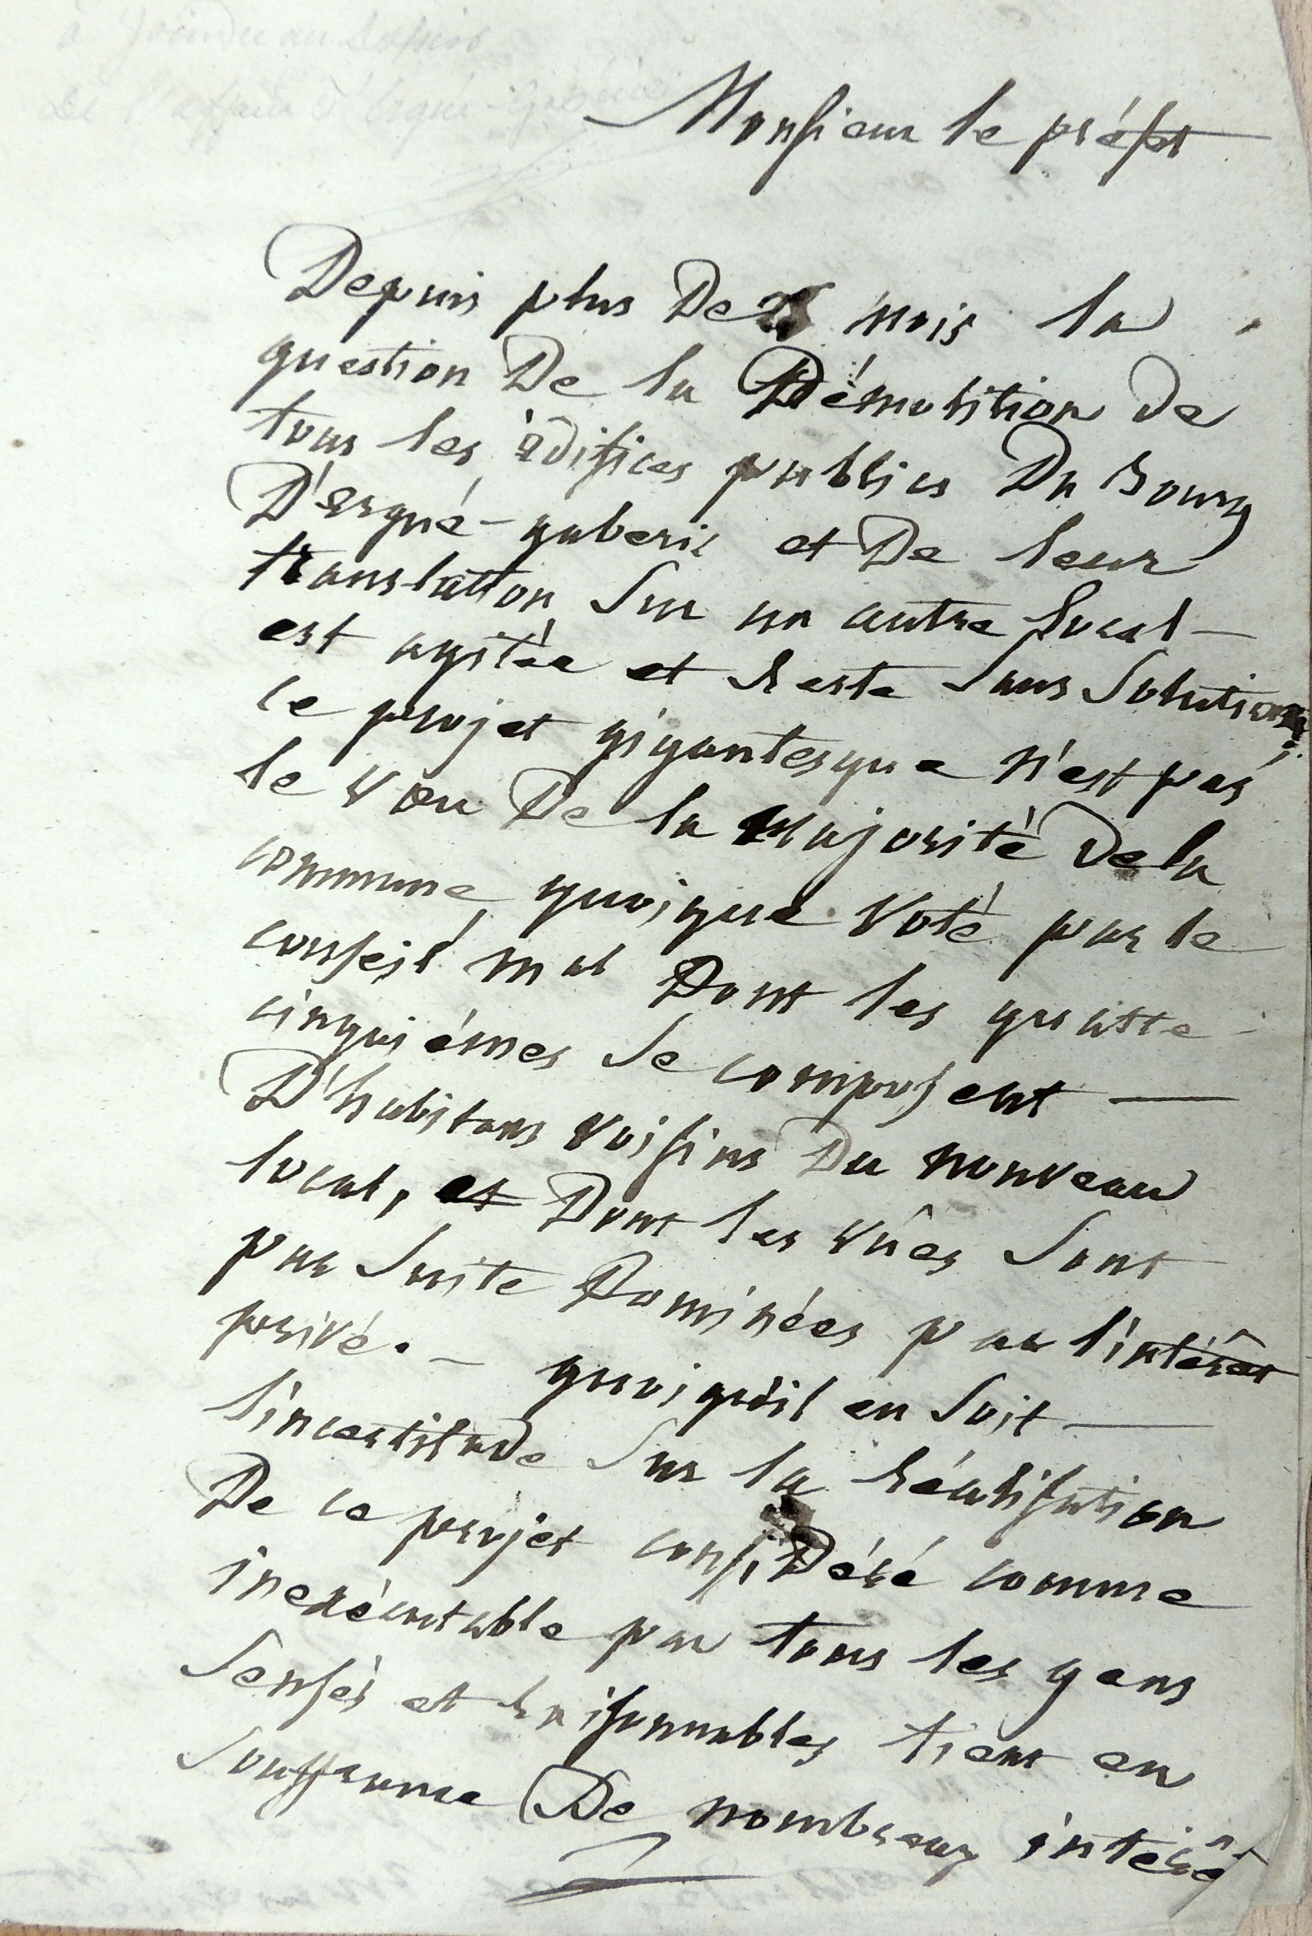 à joindre au dossier
de l'affaire d'Ergué-Gabéric
Monsieur le préfet
Depuis plus De mois la
question De la Démolition de
tous les édifices publics Du Bourg
D'ergué-gaberic et De leur
translation Sur un autre local —
est agitée et Reste Sans Solution;
ce projet gigantesque n'est pas
le vœu De la Majorité de la
commune quoique Voté par le
conseil mal Dont les quatre
cinquièmes Se composent —
D'habitans voisins Du nouveau
local, et Dont les vûes Sont
par Suite Dominées par l'intérêt
privé. — quoiqu'il en Soit —
l'incertitude Sur la Réalisation
De ce projet consiDéré comme
inexécutable par tous les gens
Sensés et Raisonnables tient en
Souffrance De nombreux intérêt